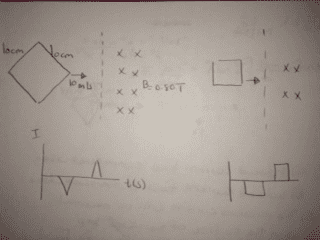 10cm 10cm
10 m/s
x x
x x
x x
x x
B=0.80T
x x
x x
I
t(s)